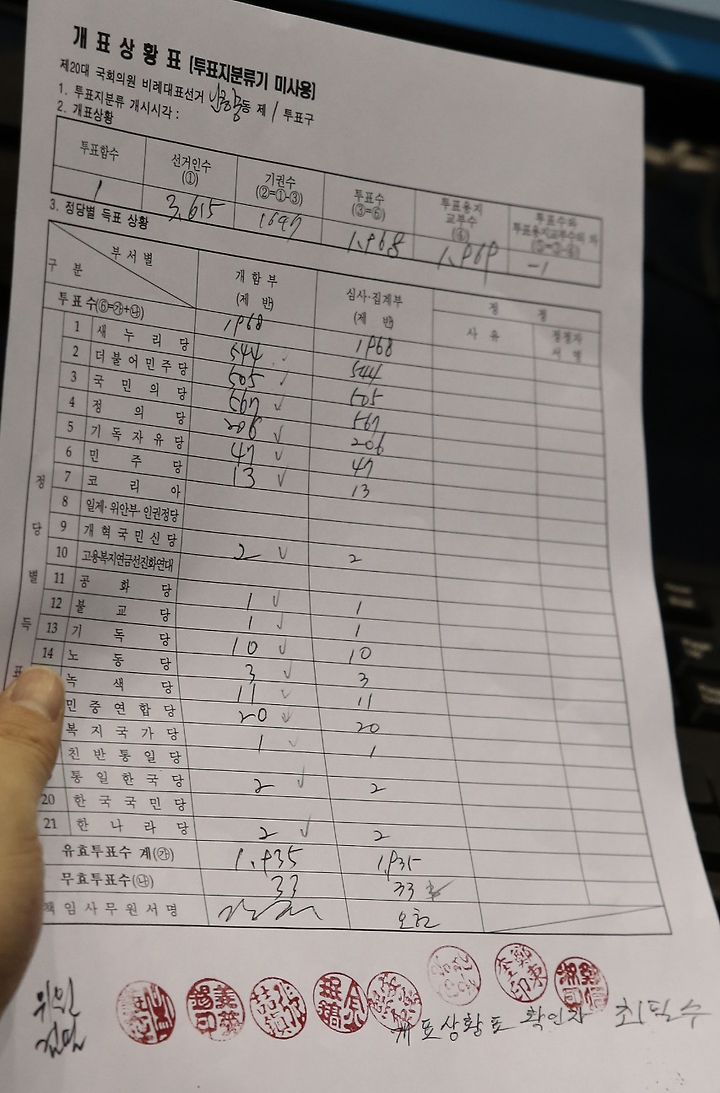 개 표 상 황 표 [투표지분류기 미사용]
제20대 국회의원 비례대표선거 동 제 1 투표구
1. 투표지분류 개시시각 :
2. 개표상황
투표함수 선거인수 (①) 기권수 (②=①-③) 투표수 (③=⑥) 투표용지 교부수 (④) 투표수와 투표용지교부수와의
1 3,615 1647 1,968 1,969 -1
3. 정당별 득표 상황
구 분 부 서 별 개 함 부 (제 반) 심사·집계부 (제 반) 정 정
사 유 정정자 서 명
투 표 수(⑥=㉮+㉯) 1968 1968
정 당 별 득 표
1 새 누 리 당 544 544
2 더불어민주당 505 505
3 국 민 의 당 567 567
4 정 의 당 206 206
5 기 독 자 유 당 47 47
6 민 주 당 13 13
7 코 리 아
8 일제·위안부·인권정당
9 개 혁 국 민 신 당 2 2
10 고용복지연금선진화연대
11 공 화 당 1 1
12 불 교 당 1 1
13 기 독 당 10 10
14 노 동 당 3 3
녹 색 당 11 11
민 중 연 합 당 20 20
복 지 국 가 당 1 1
친 반 통 일 당
통 일 한 국 당 2 2
20 한 국 국 민 당
21 한 나 라 당 2 2
유효투표수 계(㉮) 1,935 1,935
무효투표수(㉯) 33 33
책 임 사 무 원 서 명
위원
개표상황표 확인자 최필수